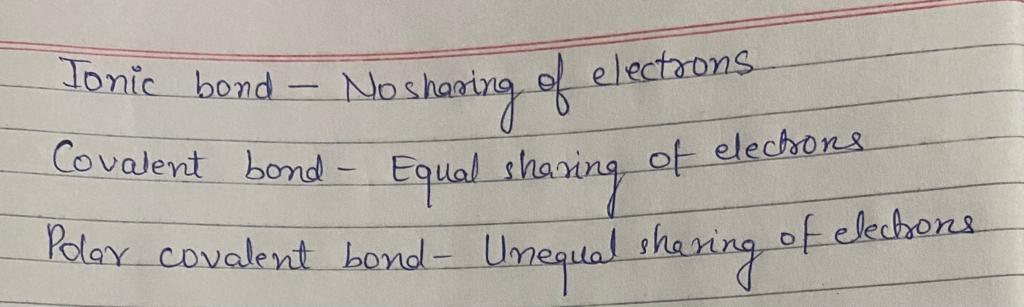 Ionic bond - No sharing of electrons
Covalent bond - Equal sharing of electrons
Polar covalent bond - Unequal sharing of electrons